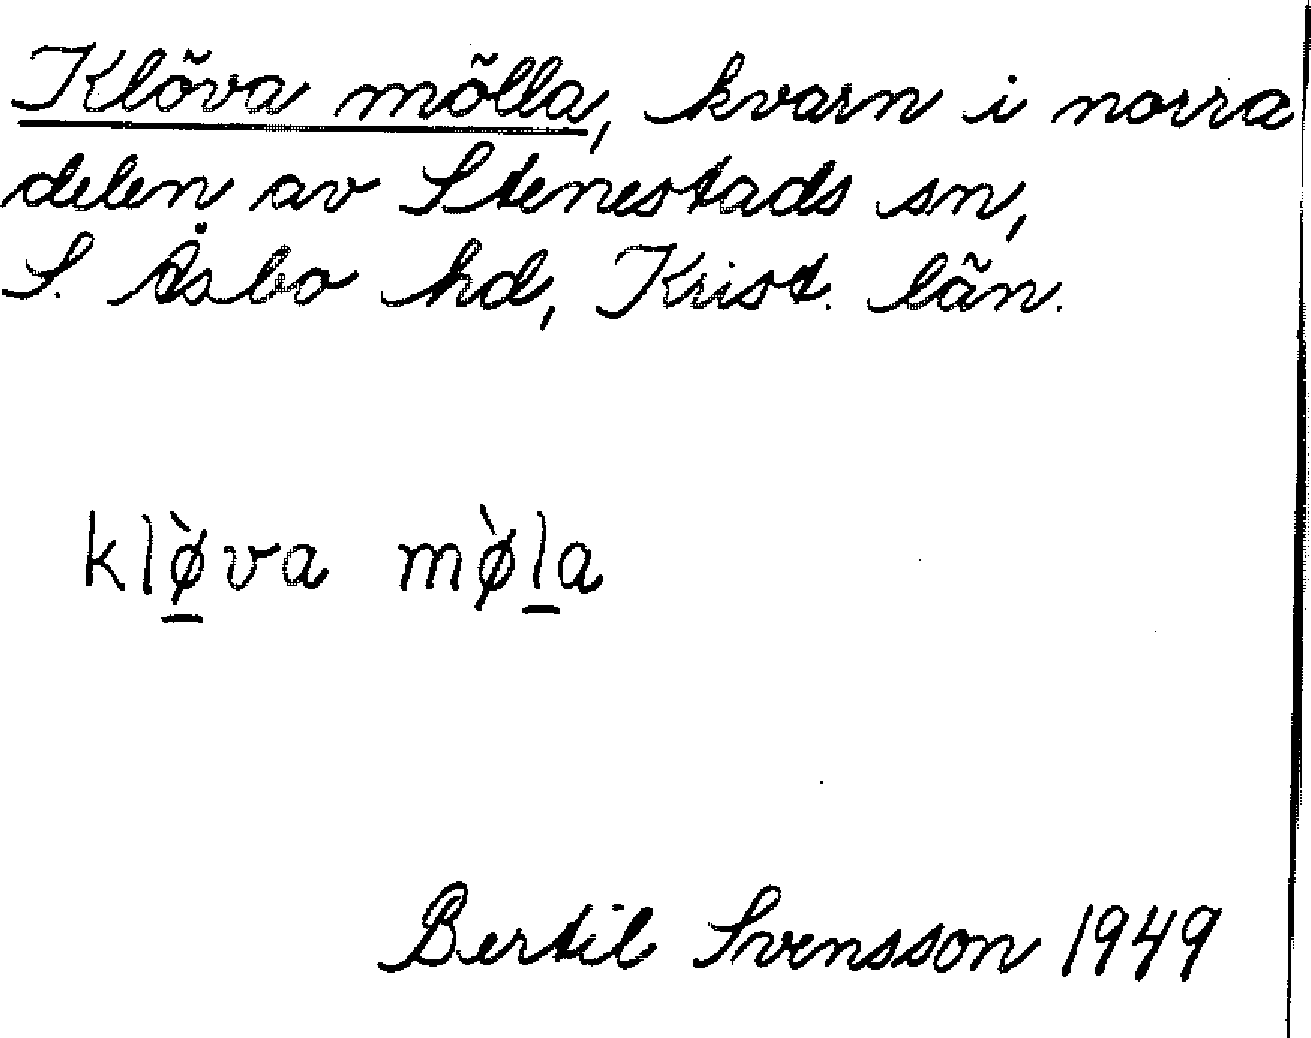 Klöva mölla, kvarn i norra
delen av Stenestads sn,
S. Åsbo hd, Krist. län.
klø̠̀va mø̀l̠a
Bertil Svensson 1949